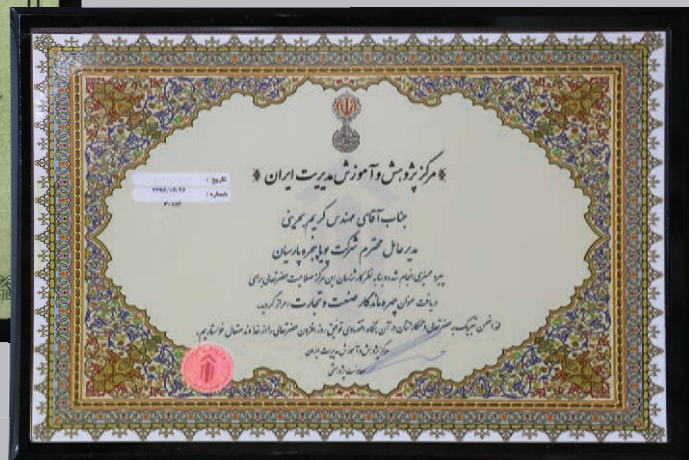 مرکز پژوهش و آموزش مدیریت ایران
تاریخ :
شماره :
جناب آقای مهندس کریم بحرینی
مدیر عامل محترم شرکت پویا پنجره پارسیان
پیرو ممیزی انجام شده و بنا به نظر کارشناسان این مرکز صلاحیت حضرتعالی برای
دریافت عنوان چهره ماندگار صنعت و تجارت احراز گردید.
لذا ضمن تبریک به حضرتعالی و همکارانتان در آن بنگاه اقتصادی توفیق روز افزون حضرتعالی را از خداوند متعال خواستاریم.
مرکز پژوهش و آموزش مدیریت ایران
معاونت پژوهشی